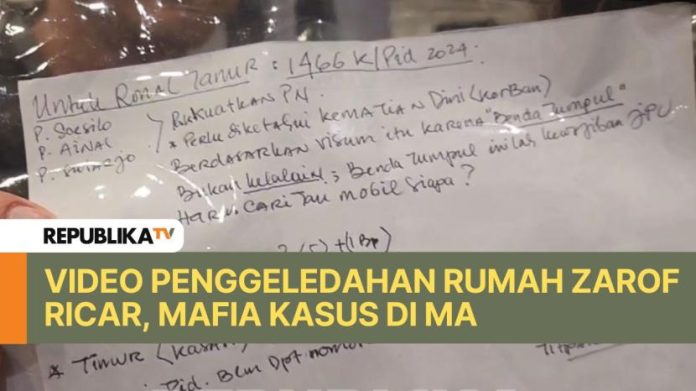 Untuk Ronal Tanur : 1466 K/Pid 2024.
P. Soesilo
P. AINAL
P. Sutarjo
Kukuatkan PN.
* Perlu diketahui KEMATIAN Dini (Korban)
BERDASARKAN VISUM itu KARENA "Benda Tumpul"
Bukan kelalaian ; Benda Tumpul inilah kewajiban JPU
Harus CARI Tau MOBIL Siapa ?
(5) + (1 Bp)
REPUBLIKA TV
VIDEO PENGGELEDAHAN RUMAH ZAROF
RICAR, MAFIA KASUS DI MA
* TIMUR
Pid. Blm Dpt nomor